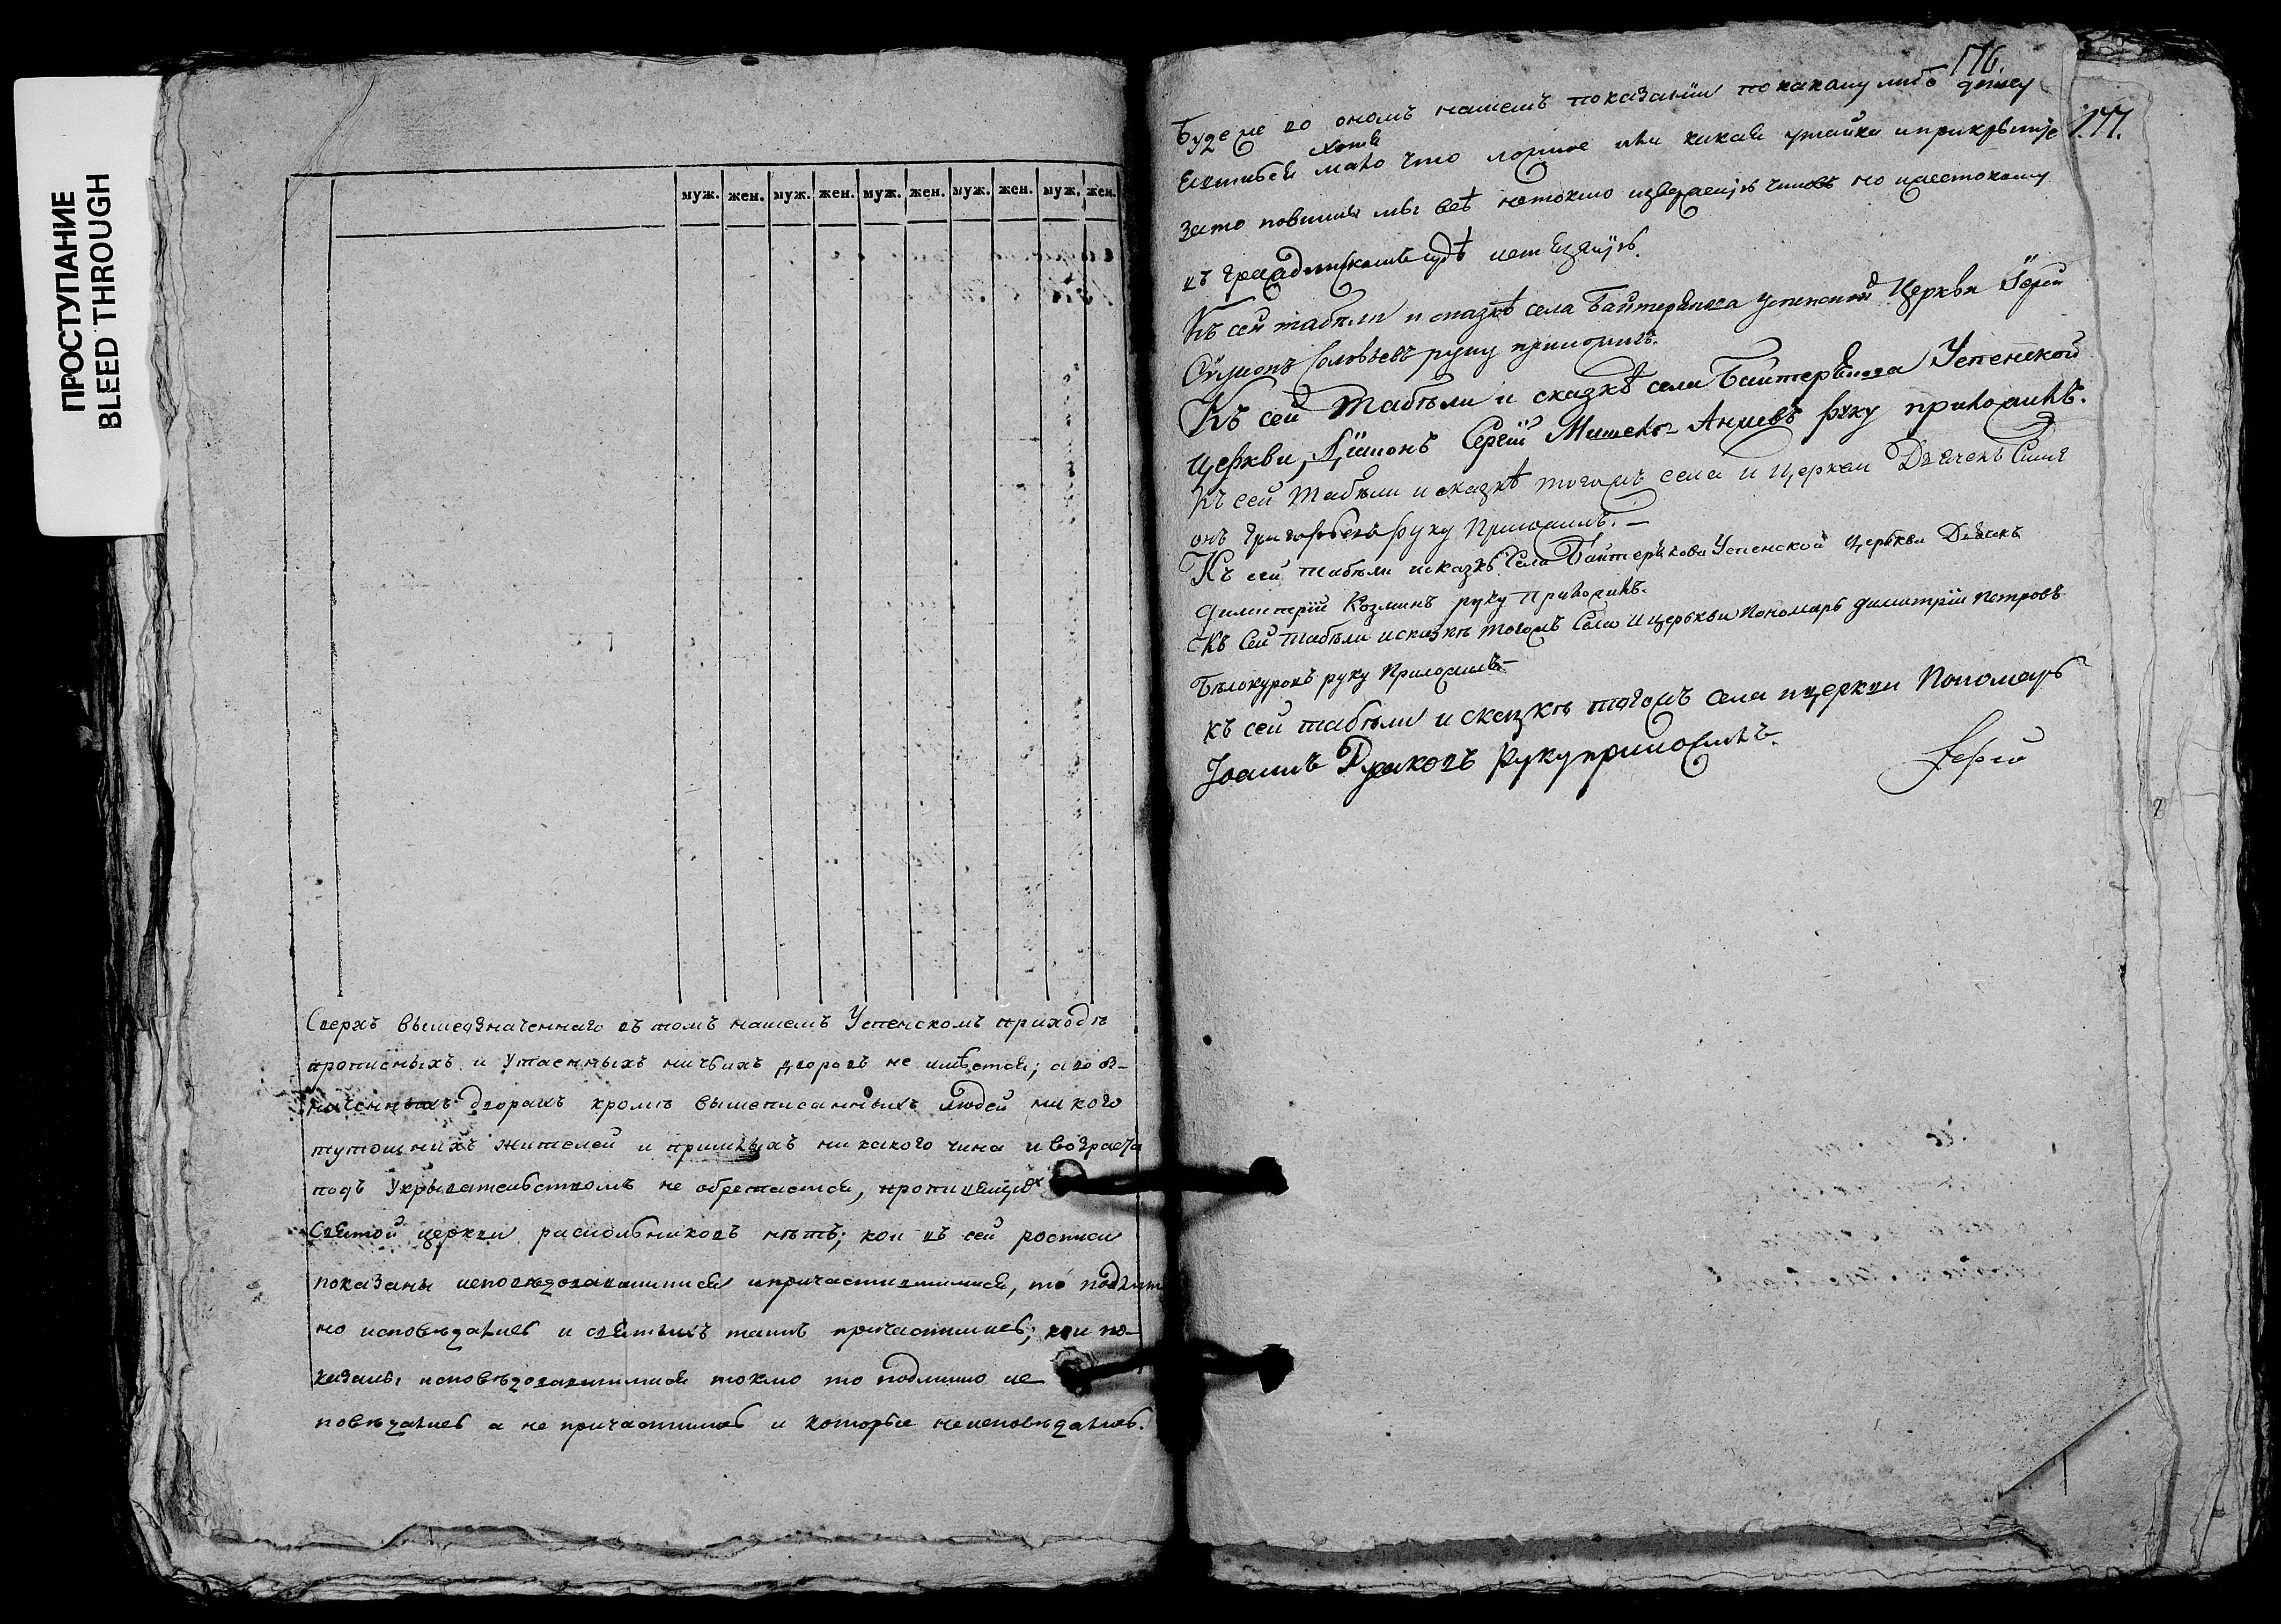 ПРОСТУПАНИЕ
BLEED THROUGH
муж. жен. муж. жен. муж. жен. муж. жен. муж. жен.
Сверхъ вышеозначеннаго въ томъ нашемъ Успенскомъ приходѣ
прописныхъ и утаенныхъ ничьихъ дворовъ не имѣется; а во оз-
наченныхъ дворахъ кромѣ вышеписанныхъ людей никого
тутошнихъ жителей и пришлыхъ никакого чина и возраста
подъ укрывательствомъ не обретается,
святой церкви раскольниковъ нѣтъ; кои въ сей росписи
показаны исповѣдовавшимися и причастившимися, то подлин
но исповѣдались и святыхъ таинъ причастились; кои по-
казаны исповѣдовавшимися токмо то подлинно ис
повѣдались а не причастились и которые неисповѣдались.
176.
177.
Буде же во ономъ нашемъ показаніи по какому либо
хотя
мало что ложное или какая утайка и прикрытіе
за то повинны мы всѣ нетокмо чиновъ но и жестокому
въ градскомъ судѣ истязанію.
Къ сей табѣли и сказкѣ села Байтерякова Успенской Церкви Іерей
Соловьевъ руку приложилъ.
Къ сей табѣли и сказкѣ села Байтерякова Успенской
церкви, Діаконъ Сергій руку приложилъ.
Къ сей табѣли и сказкѣ тогожъ села и церкви Дьячекъ Симе
онъ Григорьевъ руку приложилъ.
Къ сей табѣли и сказкѣ села Байтерякова Успенской церькви Дьячекъ
Димитрій Козминъ руку приложилъ.
Къ сей табѣли и сказкѣ тогожъ села и церькви Пономарь Димитрій Петровъ
Бѣлокуровъ руку приложилъ
къ сей табѣли и сказкѣ тогожъ села и церкви Пономарь
Іоаннъ руку приложилъ.